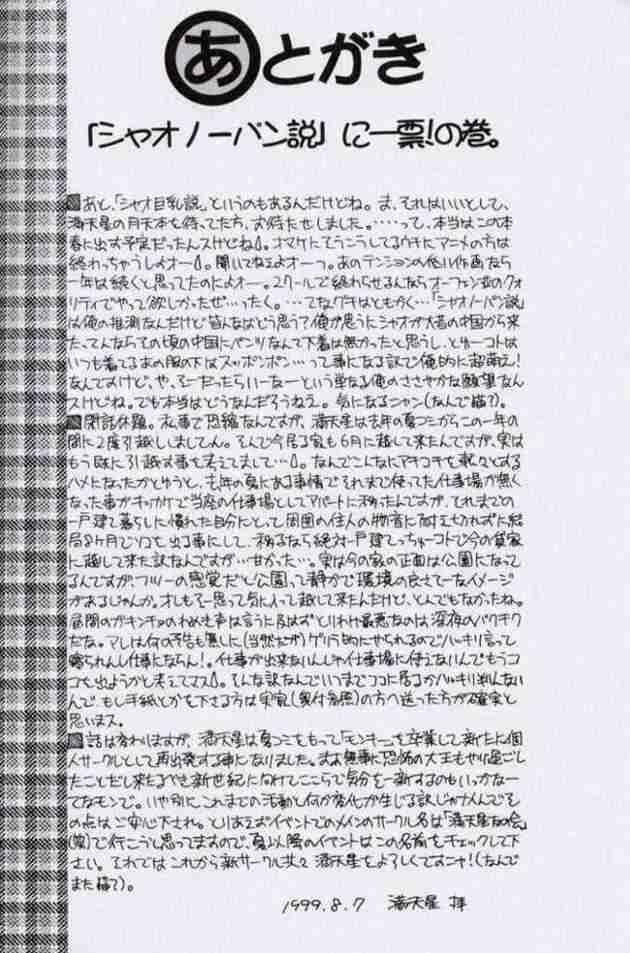 あとがき
「シャオノーパン説」に一票!の巻。
あと、「シャオ巨乳説」というのもあるんだけどね。ま、それはいいとして、
満天星の月天本を待ってた方、お待たせしました。……って、本当はこの本
春に出す予定だったんスけどね。オマケにそうこうしてるウチにアニメの方は
終わっちゃうしよオー。聞いてねェよオーっ。あのテンションの低い作画なら
一年は続くと思ってたのによオー。2クールで終わらせるんならオーフェン並のクォ
リティでやって欲しかったぜ…ったく。…てなグチはともかく…「シャオノーパン説」
は俺の推測なんだけど皆んなはどう思う?俺が思うにシャオが大昔の中国から来
たってんならその頃の中国にパンツなんて下着は無かったと思うし、とゆーコトは
いつも着てるあの服の下はスッポンポン…って事になる訳で俺的に超萌え!
なんですけど、や、そーだったらいーなーという単なる俺のささやかな願望なん
スけどね。でも本当はどうなんだろうねえ。気になるニャン(なんで猫?)。
閑話休題。私事で恐縮なんですが、満天星は去年の夏コミからこの一年の
間に2度引越ししましてん。そんで今居る家も6月に越して来たんですが、実は
もう既に引越す事を考えてまして…。なんでこんなにアチコチを転々とする
ハメになったかとゆうと、去年の夏にある事情でそれまで使ってた仕事場が無く
なった事がキッカケで当座の仕事場としてアパートに移ったんですが、それまでの
一戸建て暮らしに慣れた自分にとって周囲の住人の物音に耐えきれずに結
局8ヶ月でソコも出る事にして、移るなら絶対一戸建てっちゅーコトで今の貸家
に越して来た訳なんですが…甘かった…。実は今の家の正面は公園になって
るんですが、フツーの感覚だと公園って静かで環境の良さそーなイメージ
があるじゃんか。オレもそー思って気に入って越して来たんだけど、とんでもなかったね。
昼間のガキンチョのわめき声は言うに及ばずとりわけ最悪なのは深夜のバクチク
だな。アレは何の予告も無しに(当然だが)ゲリラ的にやられるのでハッキリ言って
寝られんし仕事にならん!。仕事が出来ないんじゃ仕事場に使えないんでもうコ
コも出ようかと考えてマス。そんな訳なんでいつまでココに居るかハッキリ判んない
んで、もし手紙とかを下さる方は実家(奥付参照)の方へ送った方が確実と
思いまス。
話は変わりますが、満天星は夏コミをもって「モンキー」を卒業して新たに個
人サークルとして再出発する事になりました。まぁ無事に恐怖の大王もやり過ごし
たことだし来たるべき新世紀に向けてここらで気分を一新するのもいっかなー
てなモンで。いや別にこれまでの活動と何か変化が生じる訳じゃけんでそ
の点はご安心下され。とりあえずイベントでのメインのサークル名は「満天星友の会」
(笑)で行こうと思ってますので、夏以降のイベントはこの名前をチェックして下
さい。それではこれから新サークル共々満天星をよろしくですニャ!(なんで
また猫?)。
1999.8.7 満天星 拝